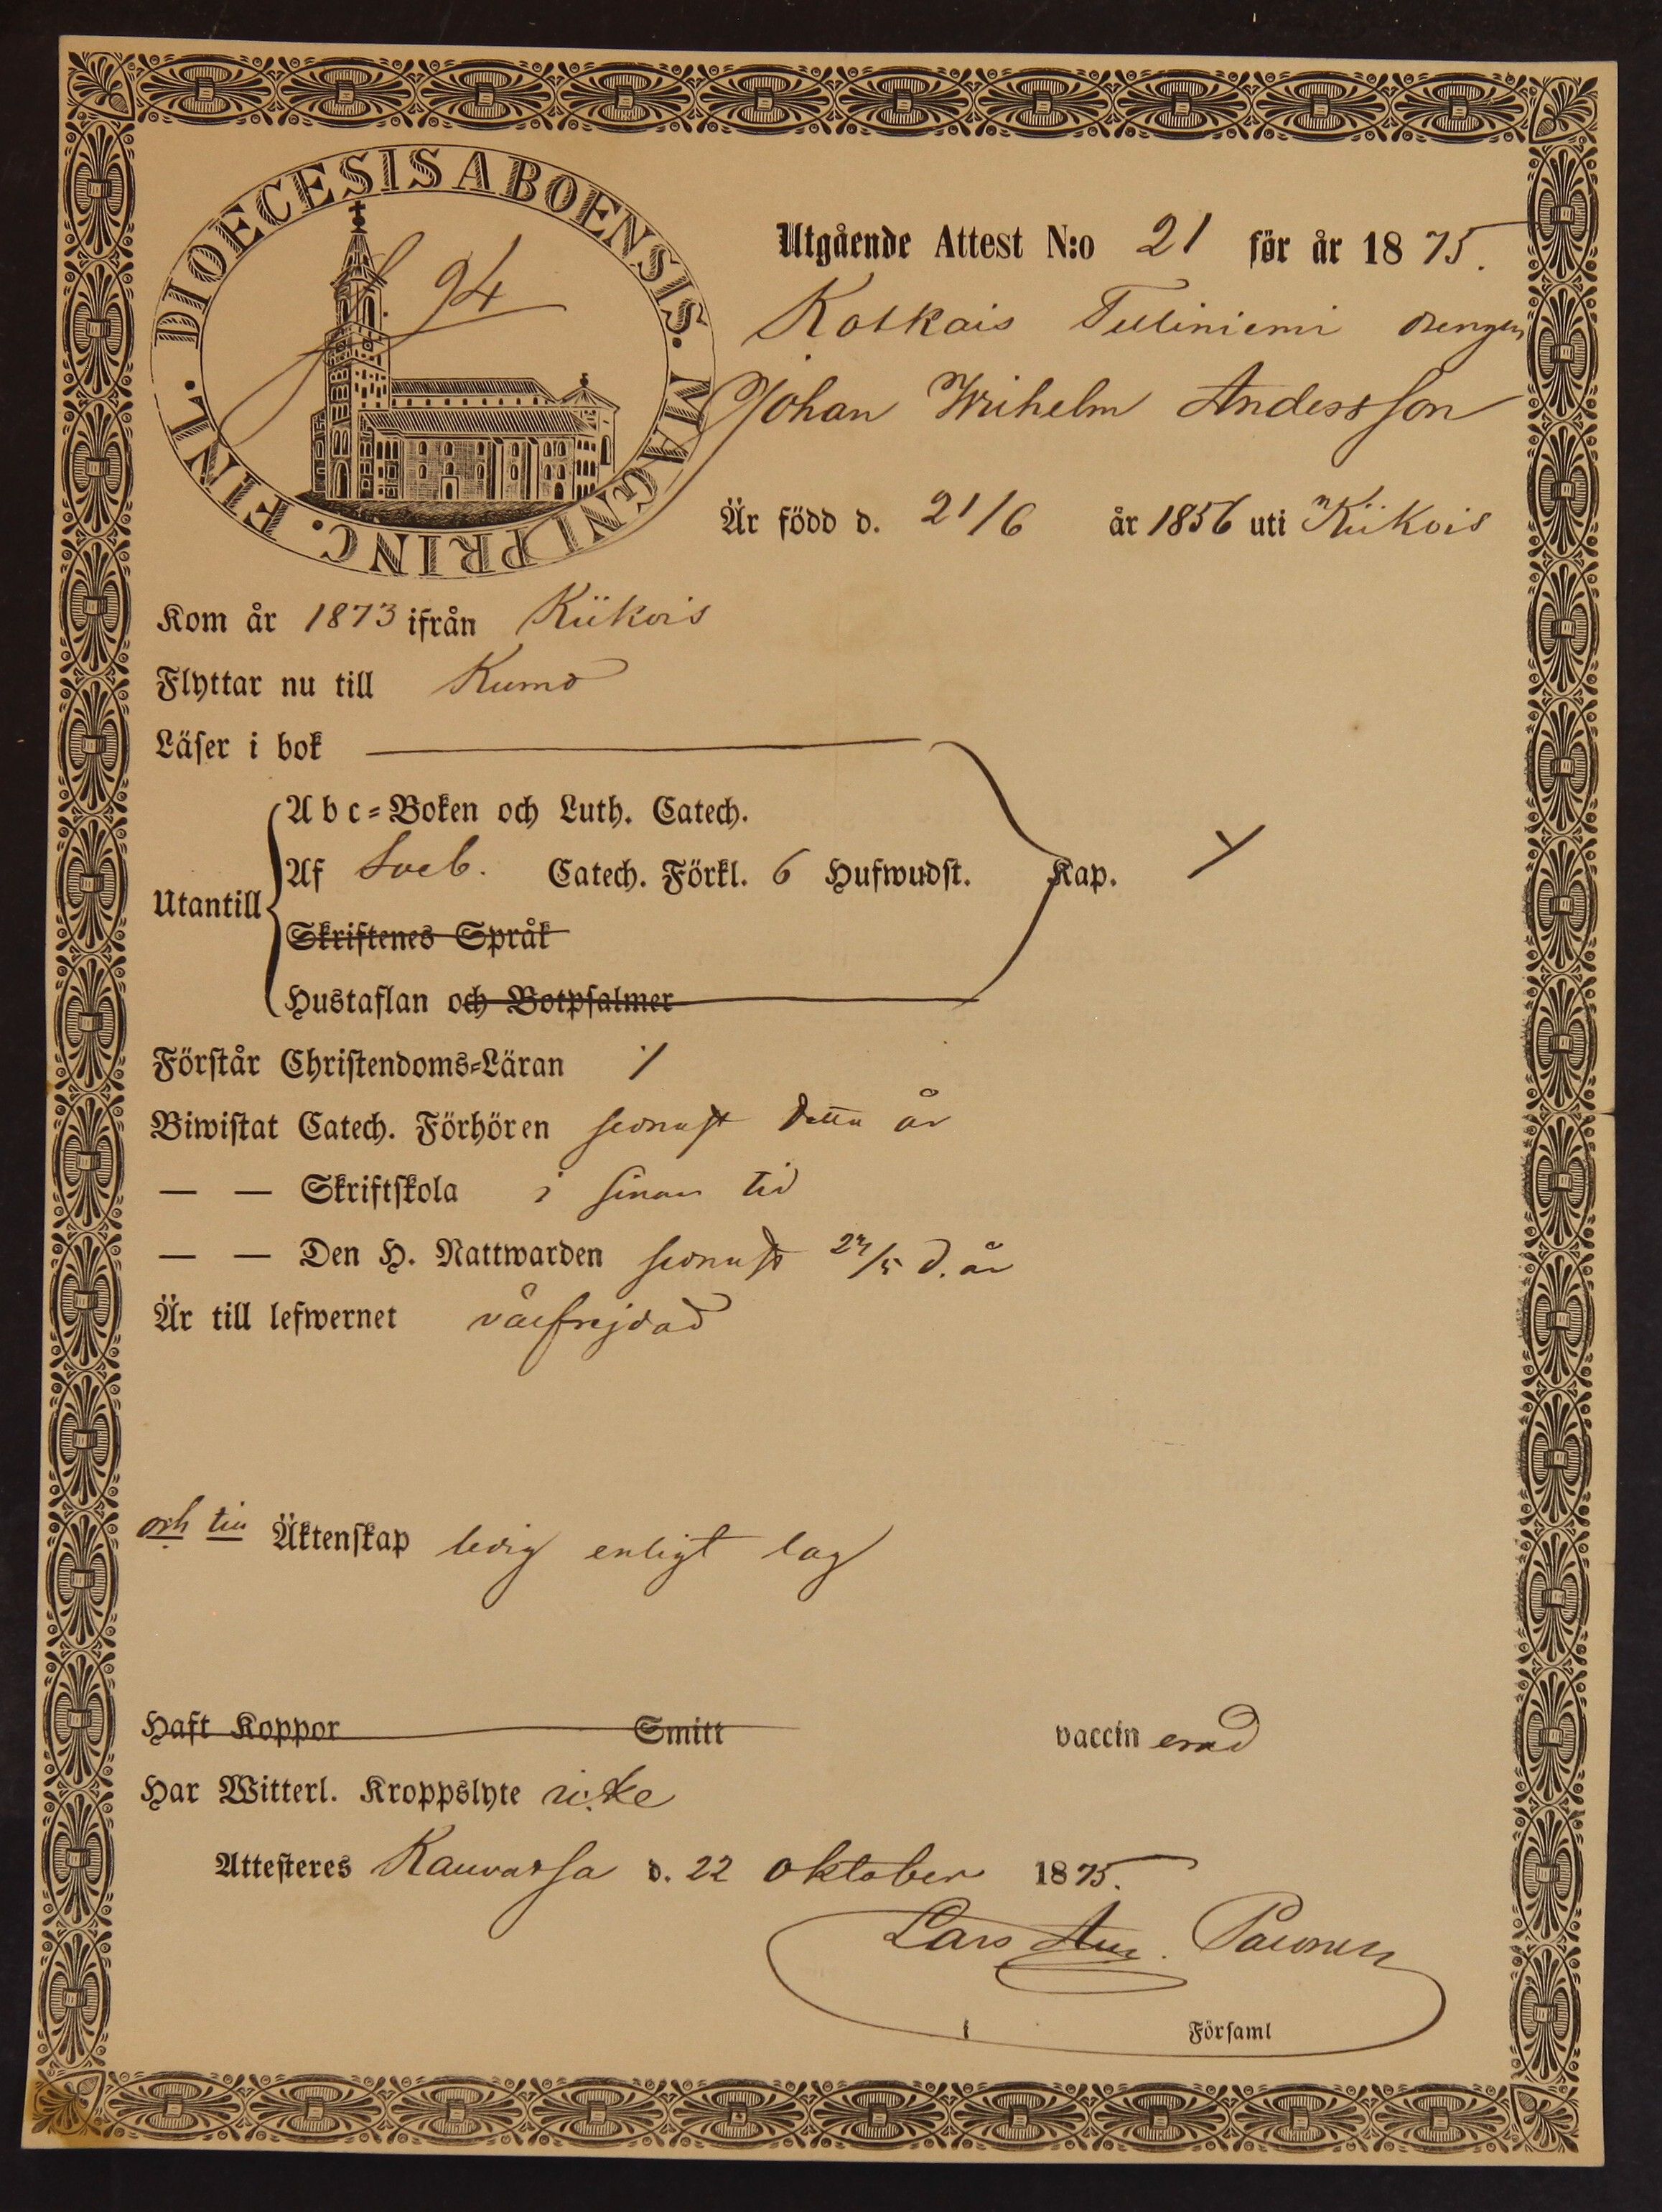 DIOECESIS ABOENSIS. MAGNI PRINC. FINL.
94
Utgående Attest N:o 21 för år 1875.
Koskais Tuliniemi drengen
Johan Wilhelm Andersson
Är född d. 21/6 år 1856 uti Kiikois
Kom år 1873 ifrån Kiikois
Flyttar nu till Kumo
Läser i bok
Abc=Boken och Luth. Catech.
Utantill Af Sveb. Catech. Förkl. 6 Hufwudst. Kap.
Skriftenes Språk
Hustaflan och Botpsalmer
Förstår Christendoms=Läran
Biwistat Catech. Förhören sednast detta år
— — Skriftskola i sinom tid
— — Den H. Nattwarden sednast /5 d. år
Är till lefwernet välfrejdad
och till Äktenskap ledig enligt lag
Haft Koppor Smitt vaccinerad
Har Witterl. Kroppslyte icke
Attesteres Kauvatsa d. 22 oktober 1875.
Lars Aug. Paronen
i Församl